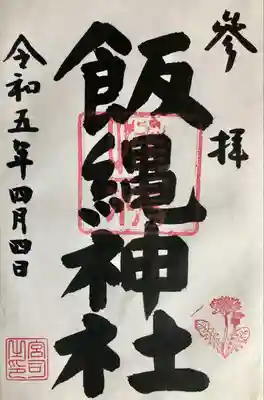 参拝
飯縄神社
令和五年四月四日